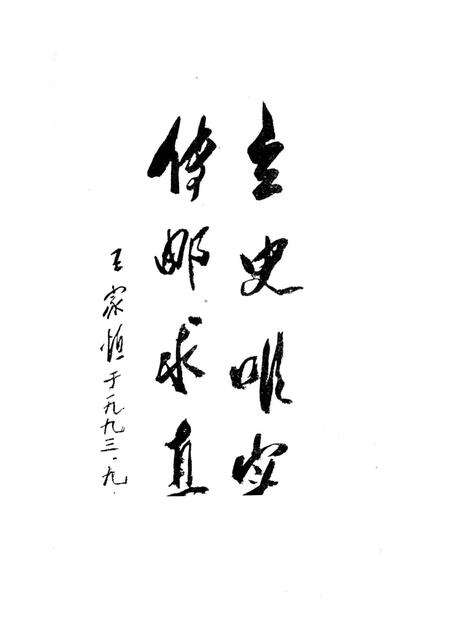 立史唯实
传邮求真
王家恒于一九九三.九.